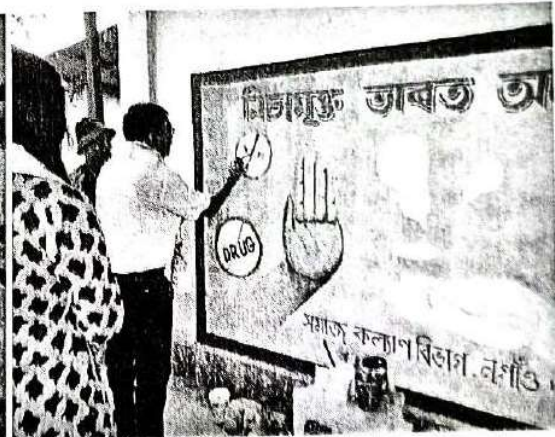 নিচামুক্ত ভাৰত
DRUG
সমাজ কল্যাণ বিভাগ . নগাঁও